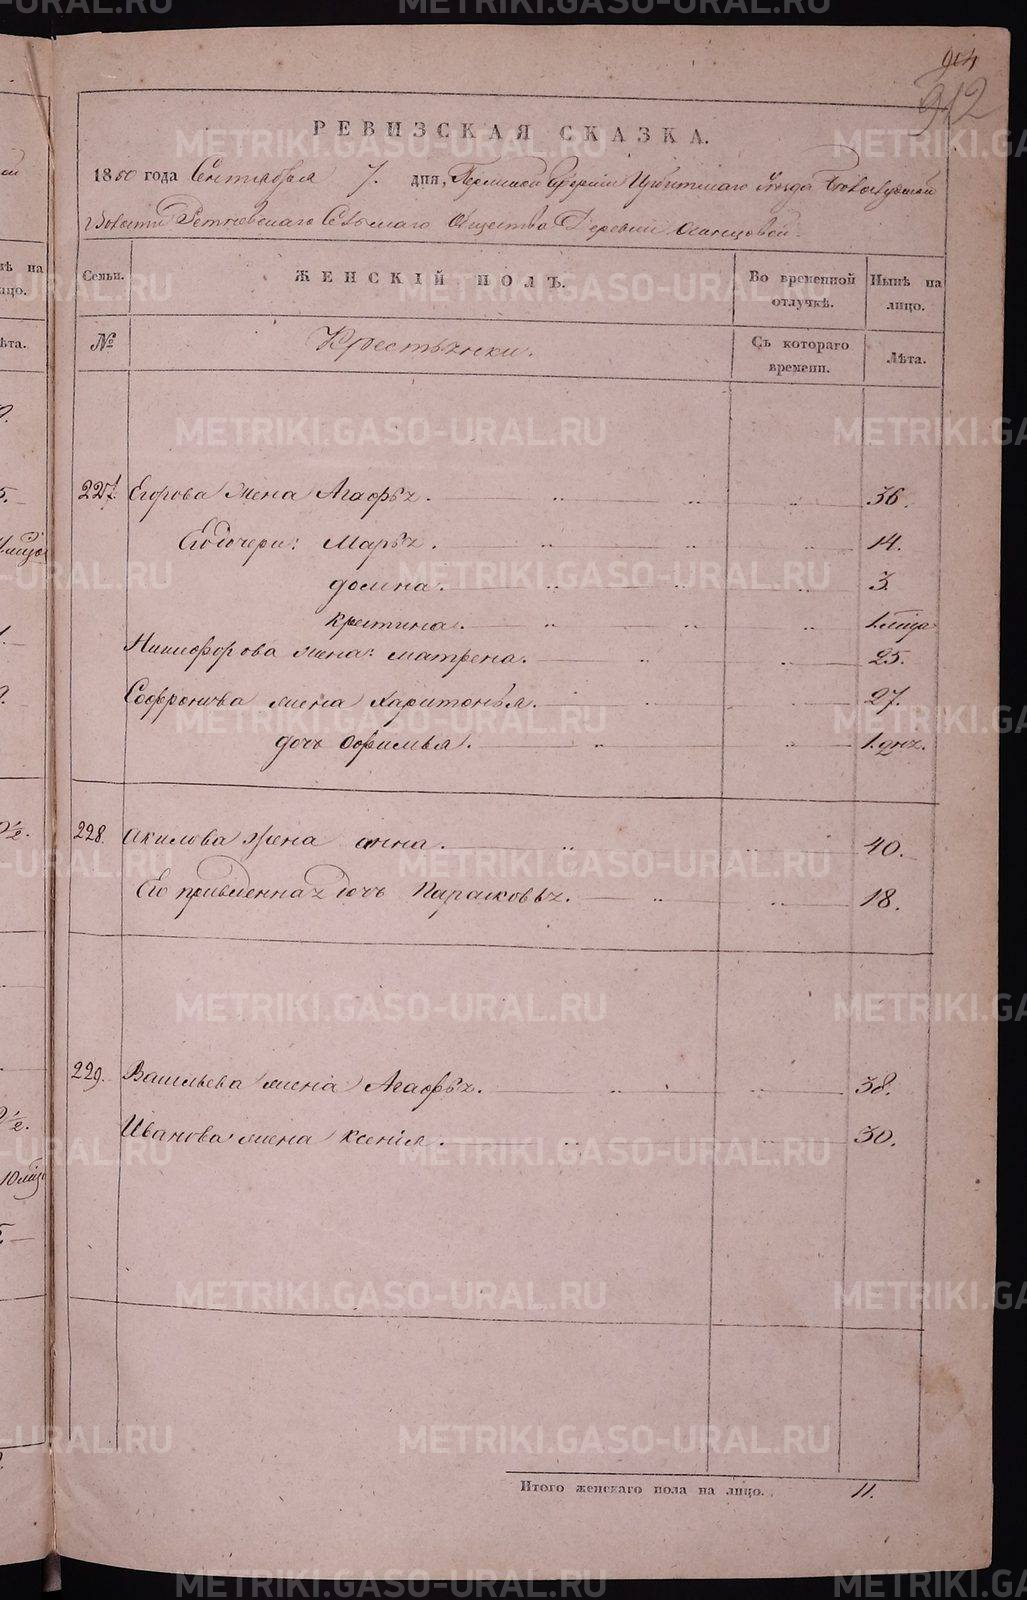 904
912
РЕВИЗСКАЯ СКАЗКА.
1850 года Сентября 7. дня, Пермской Губерніи Ирбитскаго Уезда
Волости Сельскаго Общества Деревни
Семьи.
ЖЕНСКІЙ ПОЛЪ.
Во временной отлучкѣ.
Нынѣ на лицо.
№
Крестьянки.
Съ котораго времени.
Лѣта.
227. Егорова жена Агафья. 36.
Его дочери: Марья. 14.
домна. 3.
кристина. 1.
Никифорова жена: матрена. 25.
Софронова жена Харитонья. 27.
дочь Офимья. 1. дня.
228. Акилова жена анна. 40.
Его дочь Парасковья. 18.
229. Васильева жена Агафья. 38.
Иванова жена Ксенія. 30.
Итого женскаго пола на лицо. 11.
METRIKI.GASO-URAL.RU